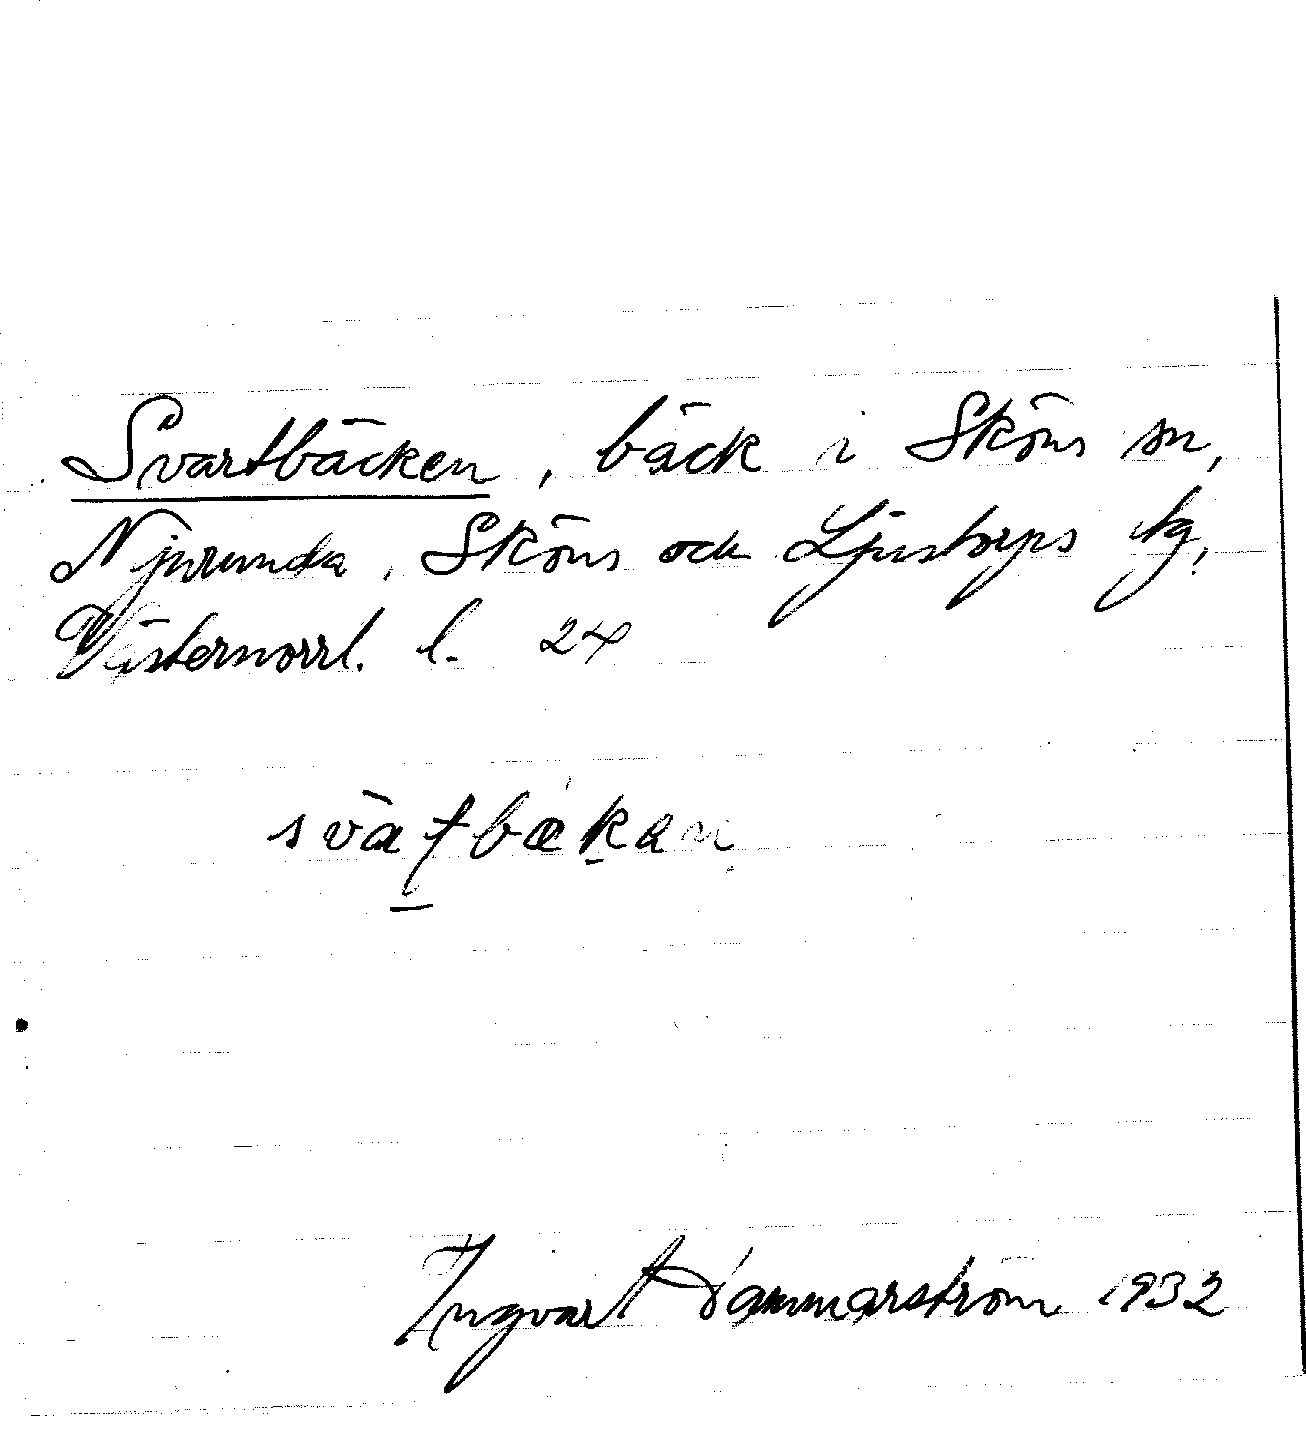 Svartbäcken, bäck i Sköns sn,
Njurunda, Sköns och Ljustorps tg,
Västernorrl. l. 24
Ingvar Hammarström 1932